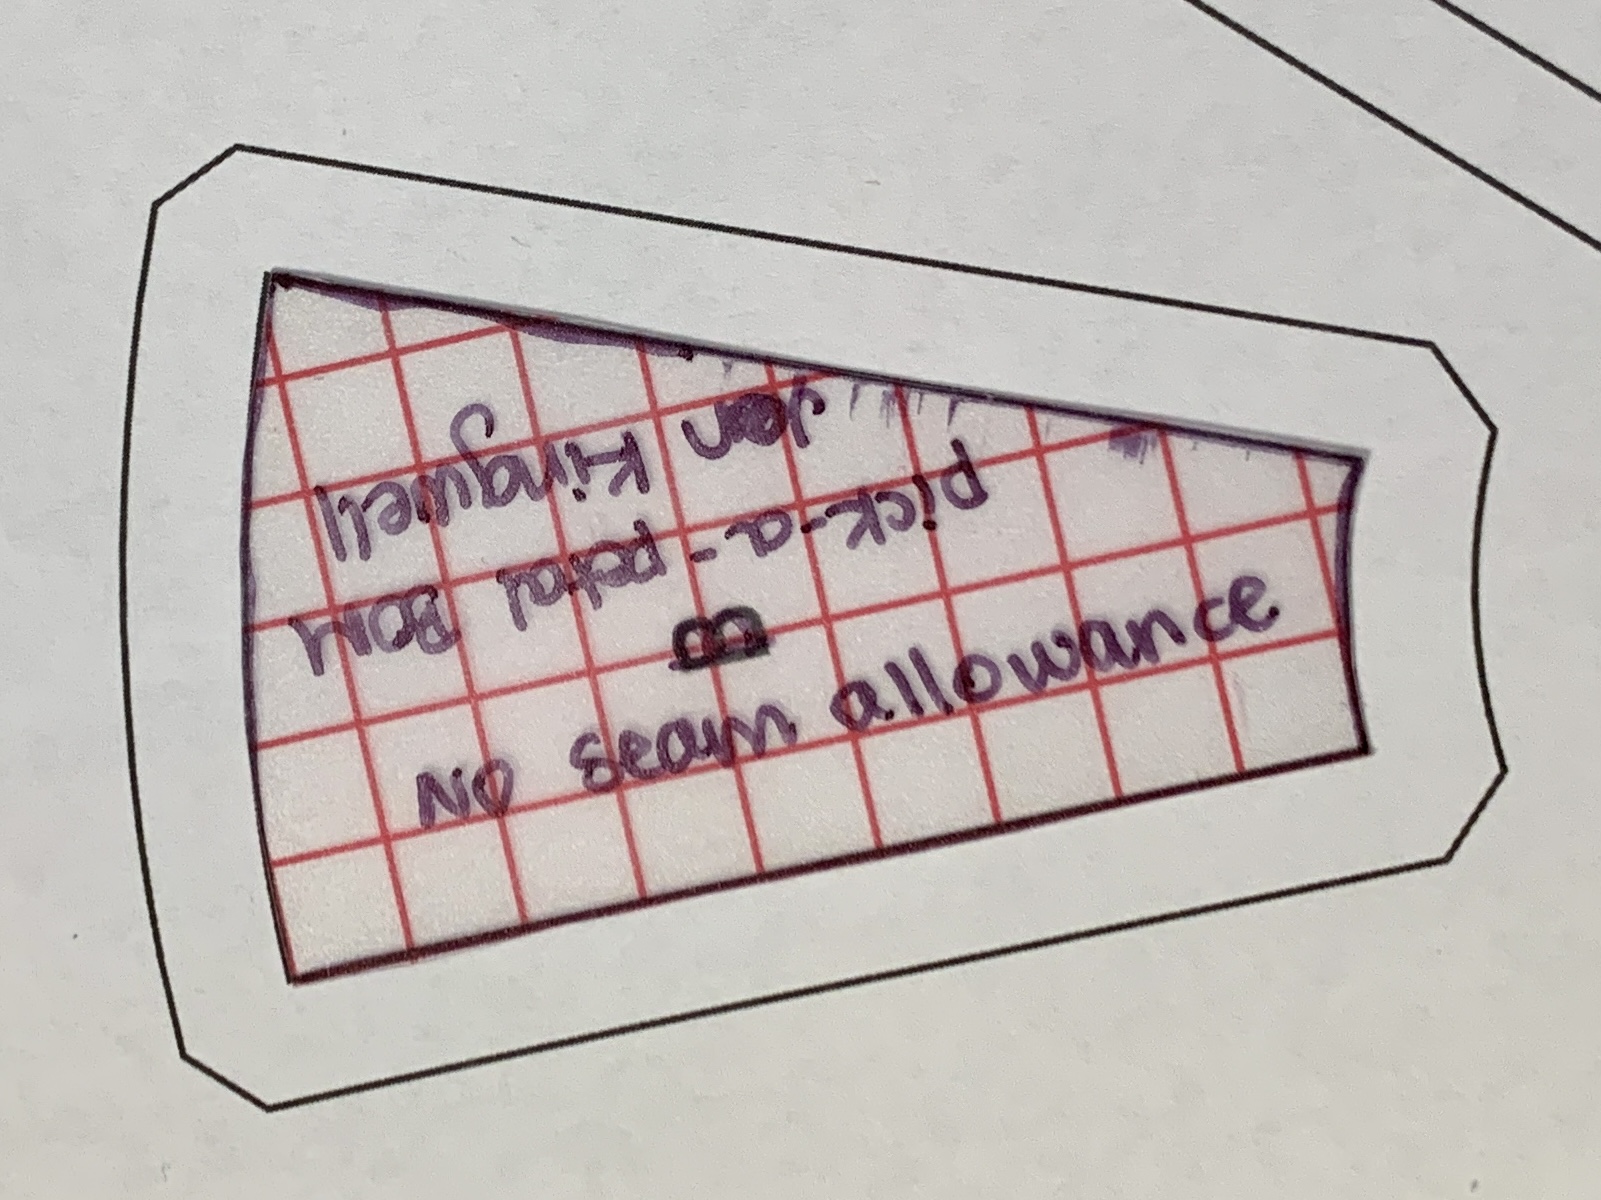 Jen Kingwell
pick-a-petal BOM
B
No seam allowance